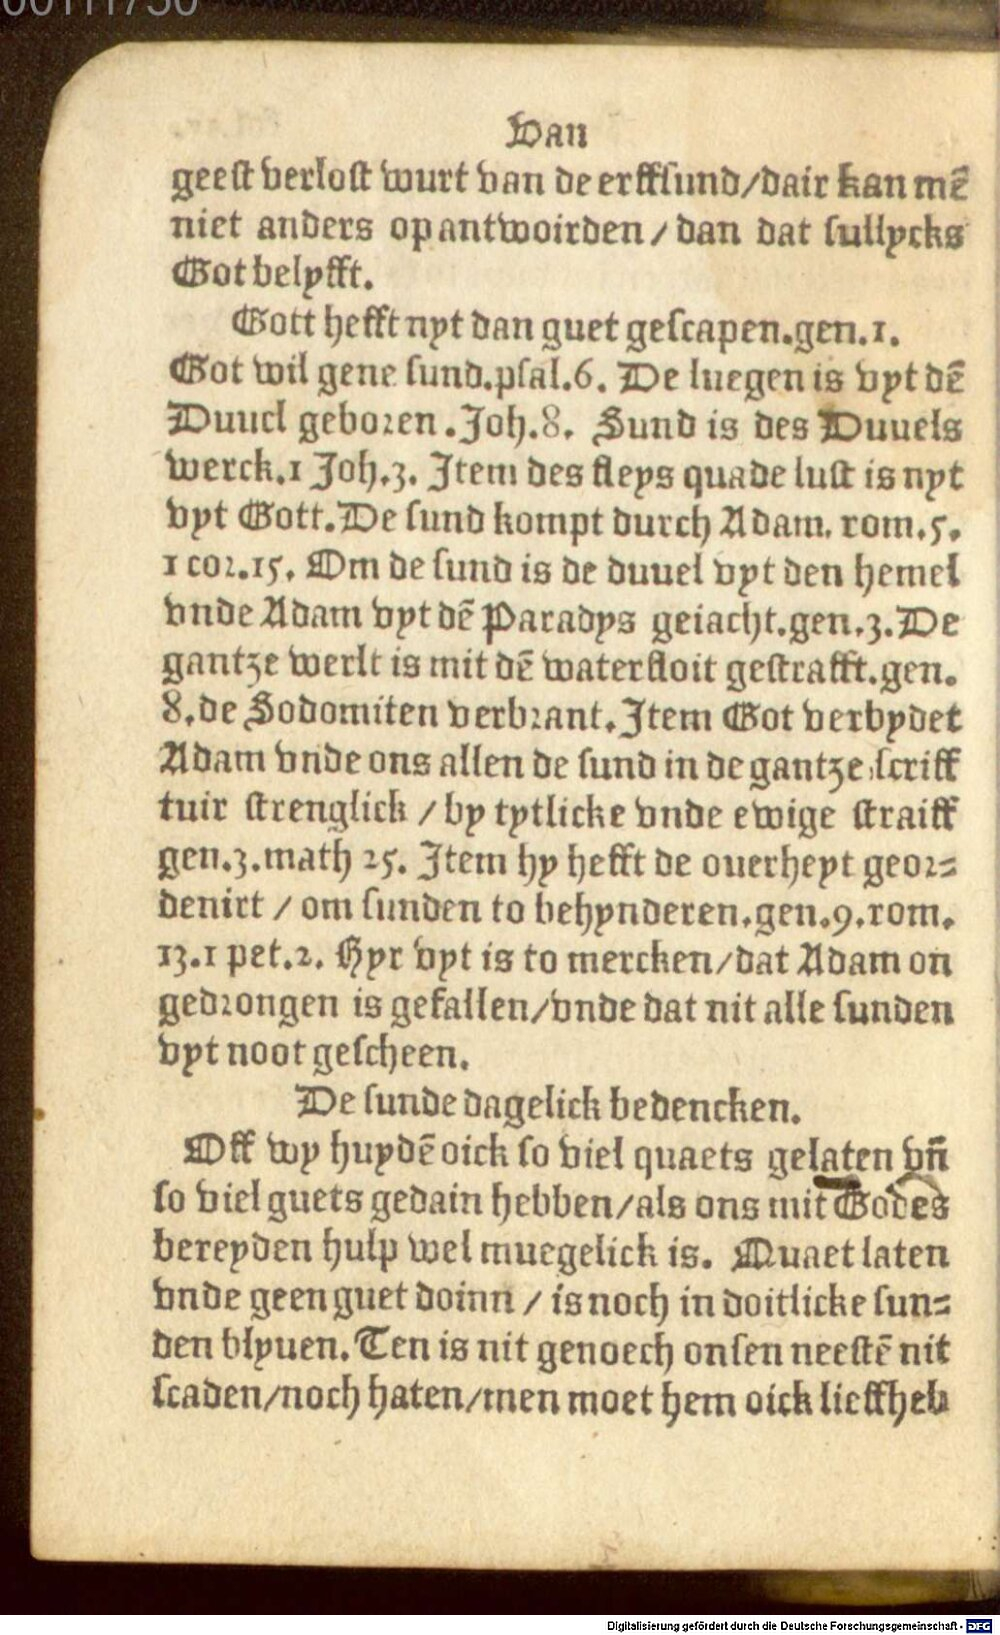 00111730
Van
geest verlost wurt van de erffsund/dair kan mē
niet anders op antwoirden/dan dat sullycks
Got belyfft.
Gott hefft nyt dan guet gescapen.gen.1.
Got wil gene sund.psal.6. De luegen is vyt dē
Duuel geboren.Joh.8. Sund is des Duuels
werck.1 Joh.3. Item des fleys quade lust is nyt
vyt Gott.De sund kompt durch Adam. rom.5.
1 cor.15. Om de sund is de duuel vyt den hemel
vnde Adam vyt dē Paradys geiacht.gen.3.De
gantze werlt is mit dē waterfloit gestrafft.gen.
8.de Sodomiten verbrant.Item Got verbydet
Adam vnde ons allen de sund in de gantze scriff
tuir strenglick/by tytlicke vnde ewige straiff
gen.3.math 25. Item hy hefft de ouerheyt geor⸗
denirt/om sunden to behynderen.gen.9.rom.
13.1 pet.2. Hyr vyt is to mercken/dat Adam on
gedrongen is gefallen/vnde dat nit alle sunden
vyt noot gescheen.
De sunde dagelick bedencken.
Off wy huydē oick so viel quaets gelaten vñ
so viel guets gedain hebben/als ons mit Godes
bereyden hulp wel muegelick is. Quaet laten
vnde geen guet doinn/is noch in doitlicke sun⸗
den blyuen.Ten is nit genoech onsen neestē nit
scaden/noch haten/men moet hem oick lieffheb
Digitalisierung gefördert durch die Deutsche Forschungsgemeinschaft - DFG